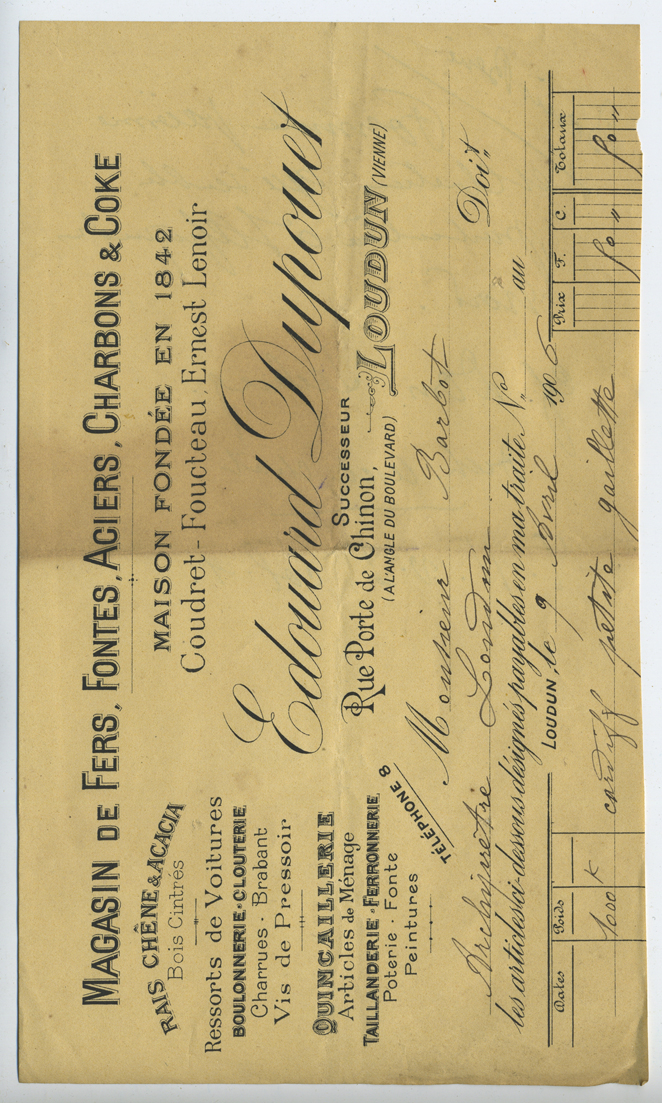 MAGASIN DE FERS, FONTES, ACIERS, CHARBONS & COKE
RAIS CHÊNE & ACACIA
Bois Cintrés
Ressorts de Voitures
BOULONNERIE · CLOUTERIE
Charrues · Brabant
Vis de Pressoir
QUINCAILLERIE
Articles de Ménage
TAILLANDERIE · FERRONNERIE
Poterie · Fonte
Peintures
TÉLÉPHONE 8
MAISON FONDÉE EN 1842
Coudret - Foucteau, Ernest Lenoir
Edouard Dupouet
SUCCESSEUR
Rue Porte de Chinon, LOUDUN (VIENNE)
(A L'ANGLE DU BOULEVARD)
Monsieur Barbot
Architecte Loudun Doit
les articles ci-dessous désignés payables en ma traite N° au
LOUDUN, le 9 Avril 1906
Dates Poids Prix F. C. Totaux
1000 K cardiff petite gaillette 50 " 50 "